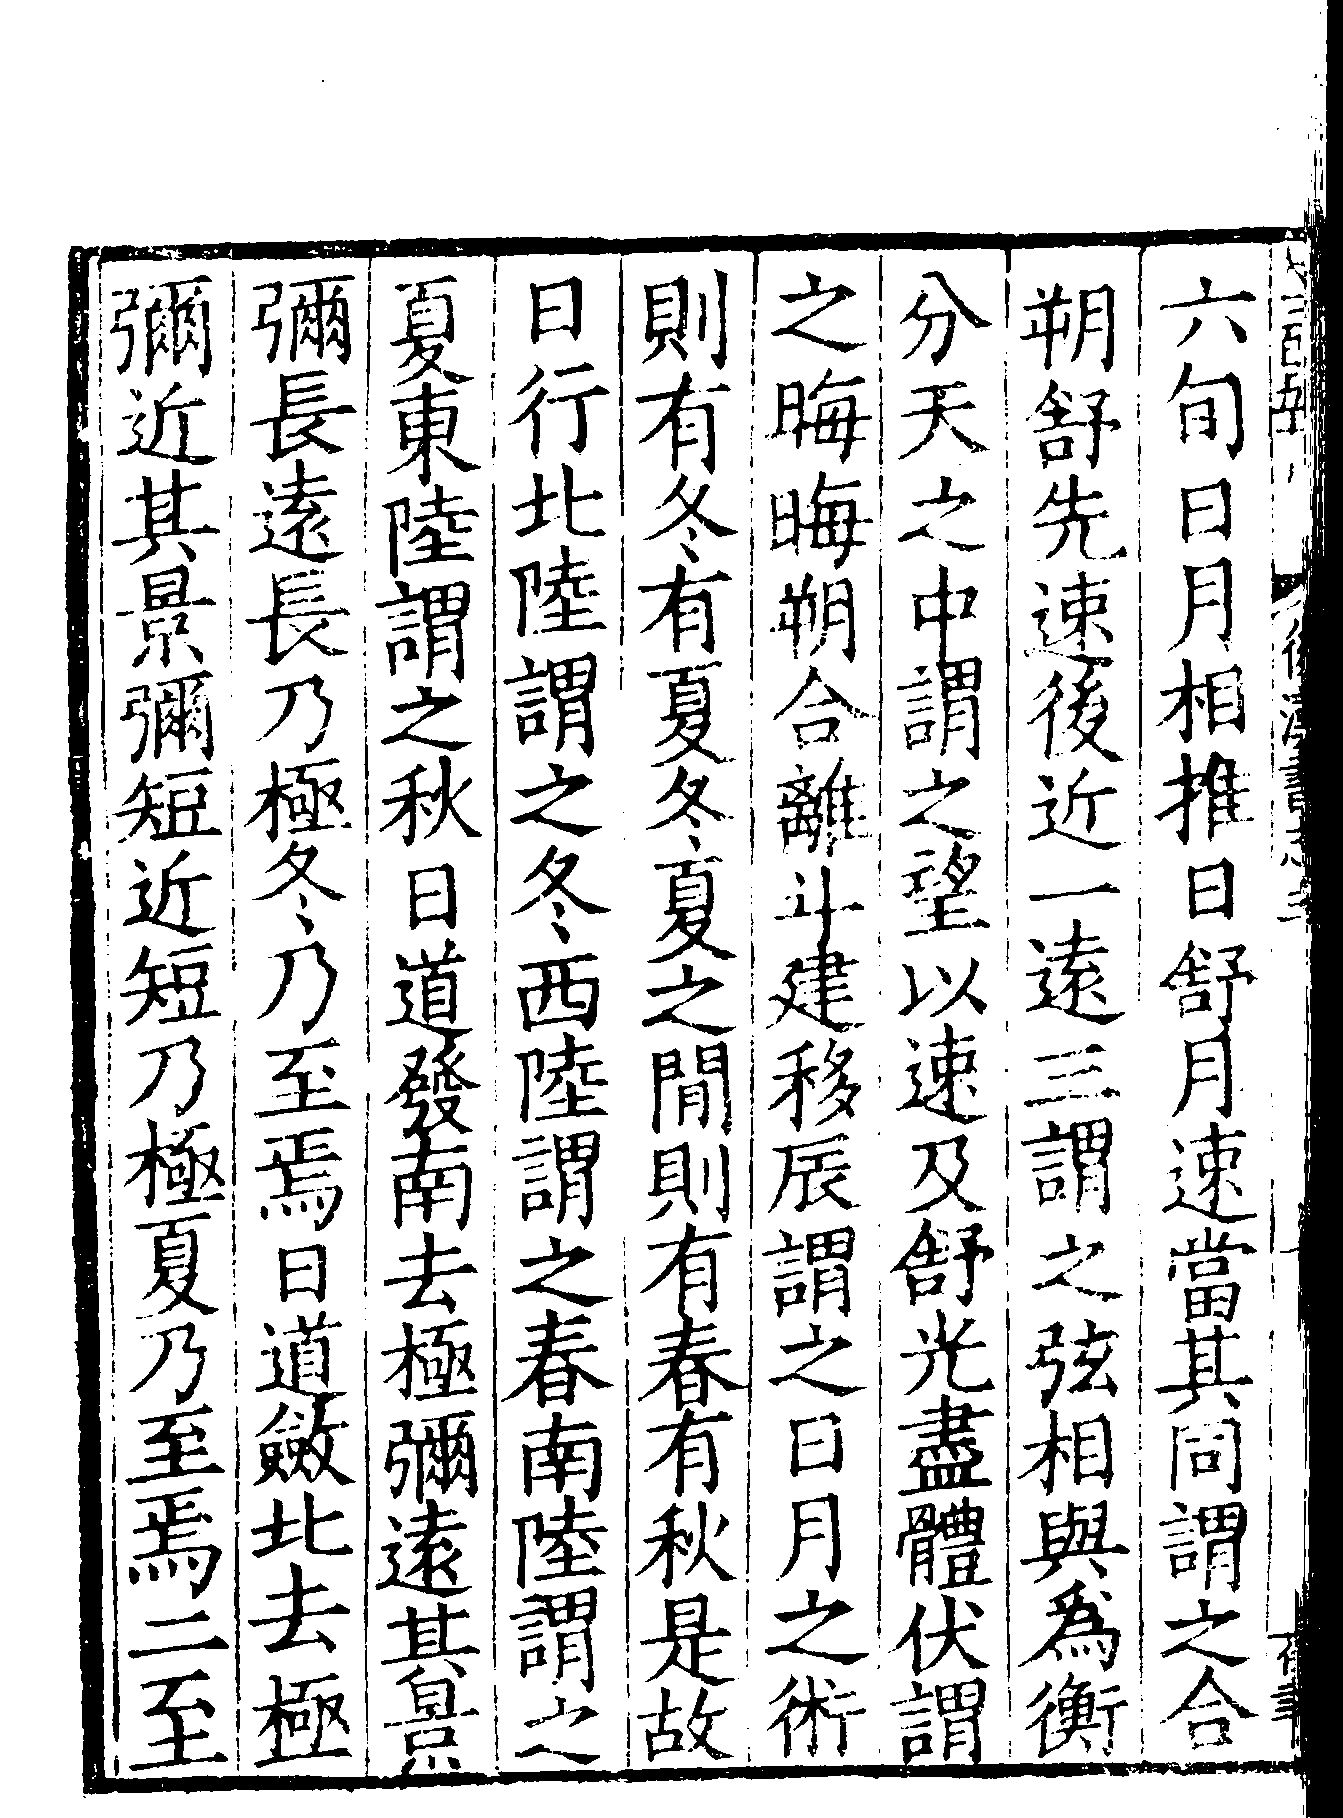 六旬日月相推日舒月速當其同謂之合
朔舒先速後近一遠三謂之弦相與爲衡
分天之中謂之望以速及舒光盡體伏謂
之晦晦朔合離斗建移辰謂之日月之術
則有冬有夏冬夏之間則有春有秋是故
日行北陸謂之冬西陸謂之春南陸謂之
夏東陸謂之秋日道發南去極彌遠其景
彌長遠長乃極冬乃至焉日道斂北去極
彌近其景彌短近短乃極夏乃至焉二至